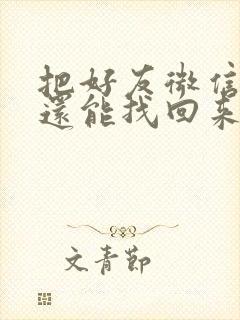 把好友微信
還能找回来
文青節